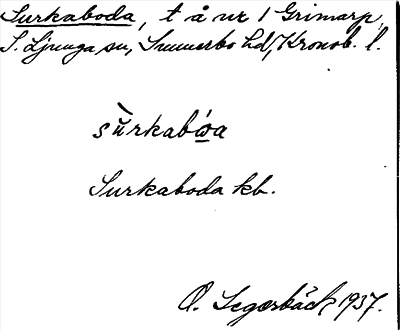 Surkaboda, t å nr 1 Grimarp,
S. Ljunga sn, Sunnerbo hd, Kronob. l.
sùrkabóa
Surkaboda kb.
O. Segerbäck 1937.